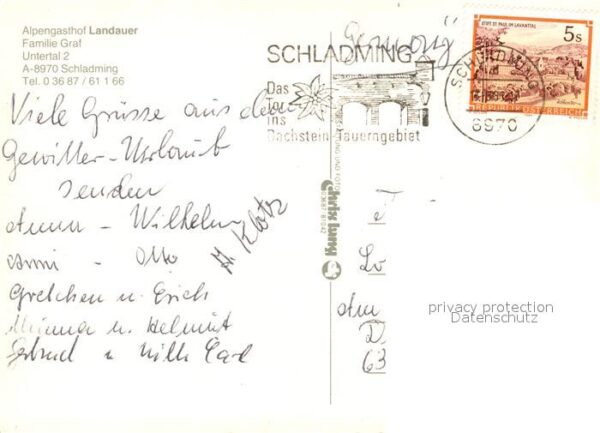 Alpengasthof Landauer
Familie Graf
Untertal 2
A-8970 Schladming
Tel. 0 36 87 / 61 1 66
Viele Grüsse aus dem
Gewitter-Urlaub
senden
Anna - Wilhelm
Anni - Otto
Gretchen u. Erich
Minna u. Helmut
Gertrud u Willi Carl
A. Klotz
"Germany"
SCHLADMING
Das
Tor
ins
Dachstein-Tauerngebiet
SCHLADMING
8970
STIFT ST. PAUL IM LAVANTTAL
5s
REPUBLIK ÖSTERREICH
chris lang
Am
63
privacy protection
Datenschutz